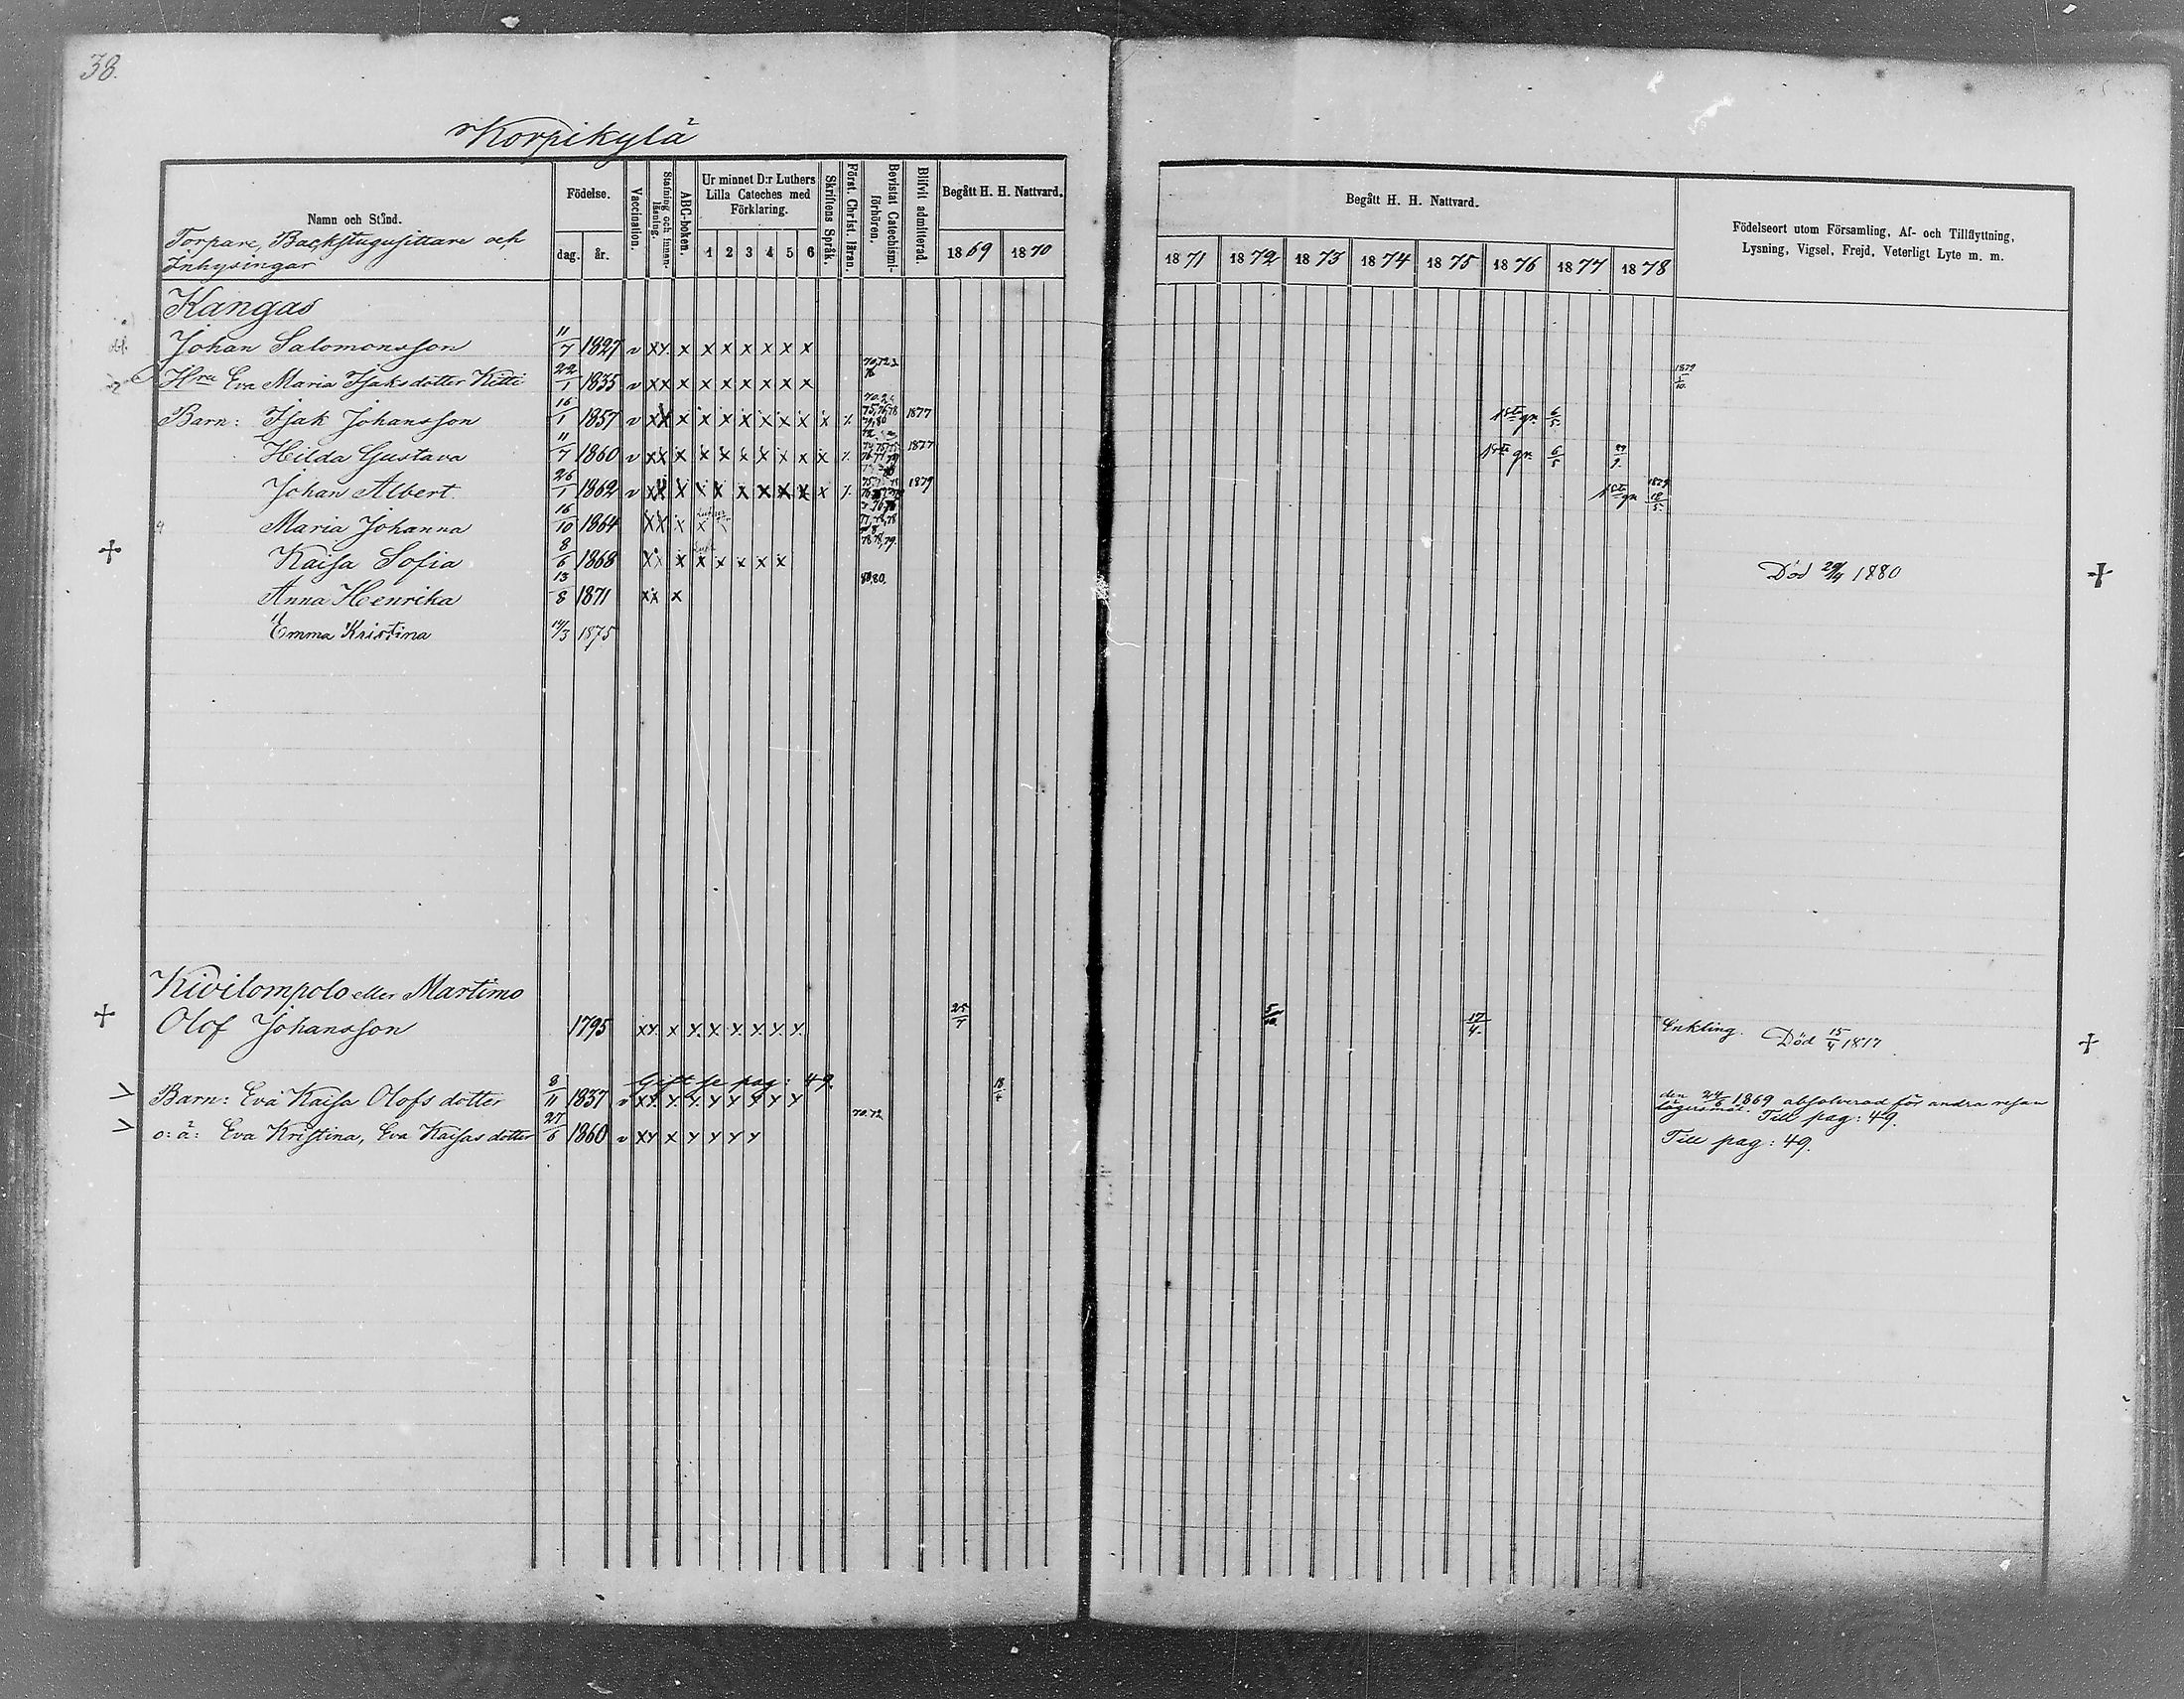 38.
Korpikylä
Namn och Stånd.
Torpare, Backstugusittare och
Inhysingar
Födelse.
dag. år.
Vaccination.
Stafning och innanläsning.
ABC-boken.
Ur minnet D:r Luthers
Lilla Cateches med
Förklaring.
1 2 3 4 5 6
Skriftens Språk.
Först. Christ. läran.
Bevistat Catechismi-
förhören.
Blifvit admitterad.
Begått H. H. Nattvard.
1869 1870
Begått H. H. Nattvard.
1871 1872 1873 1874 1875 1876 1877 1878
Födelseort utom Församling, Af- och Tillflyttning,
Lysning, Vigsel, Frejd, Veterligt Lyte m. m.
Kangas
Johan Salomonsson 11/7 1827 v xx x x x x x x x
Hru Eva Maria Isaksdotter Kitti 22/1 1835 v xx x x x x x x x 1879
Barn: Isak Johansson 16/1 1857 v xx x x x x x x x x 1877 1sta gn 6/5
Hilda Gustava 11/7 1860 v xx x x x x x x x x 1877 1sta gn 6/5
Johan Albert 26/1 1862 v xx x x x x x x x x 1879 1sta gn 1879 18/5
Maria Johanna 16/10 1864 xx x x
+ Kaisa Sofia 8/6 1868 xx x x x x x x 78,79. Död 29/4 1880 +
Anna Henrika 13/8 1871 xx x 80.
Emma Kristina 14/3 1875
Kivilompolo eller Martimo
+ Olof Johansson 1795 xx x x x x x x x 25/7 5/10 17/4 Enkling. Död 15/4 1877 +
Gift se pag: 49.
Barn: Eva Kaisa Olofsdotter 8/11 1837 v xx x x x x x x x 18/4 den 24/6 1869 absolverad för andra resan
lägersmål. Till pag: 49.
o: ä: Eva Kristina, Eva Kaisas dotter 27/6 1860 v xx x x x x x 70.72 Till pag: 49.